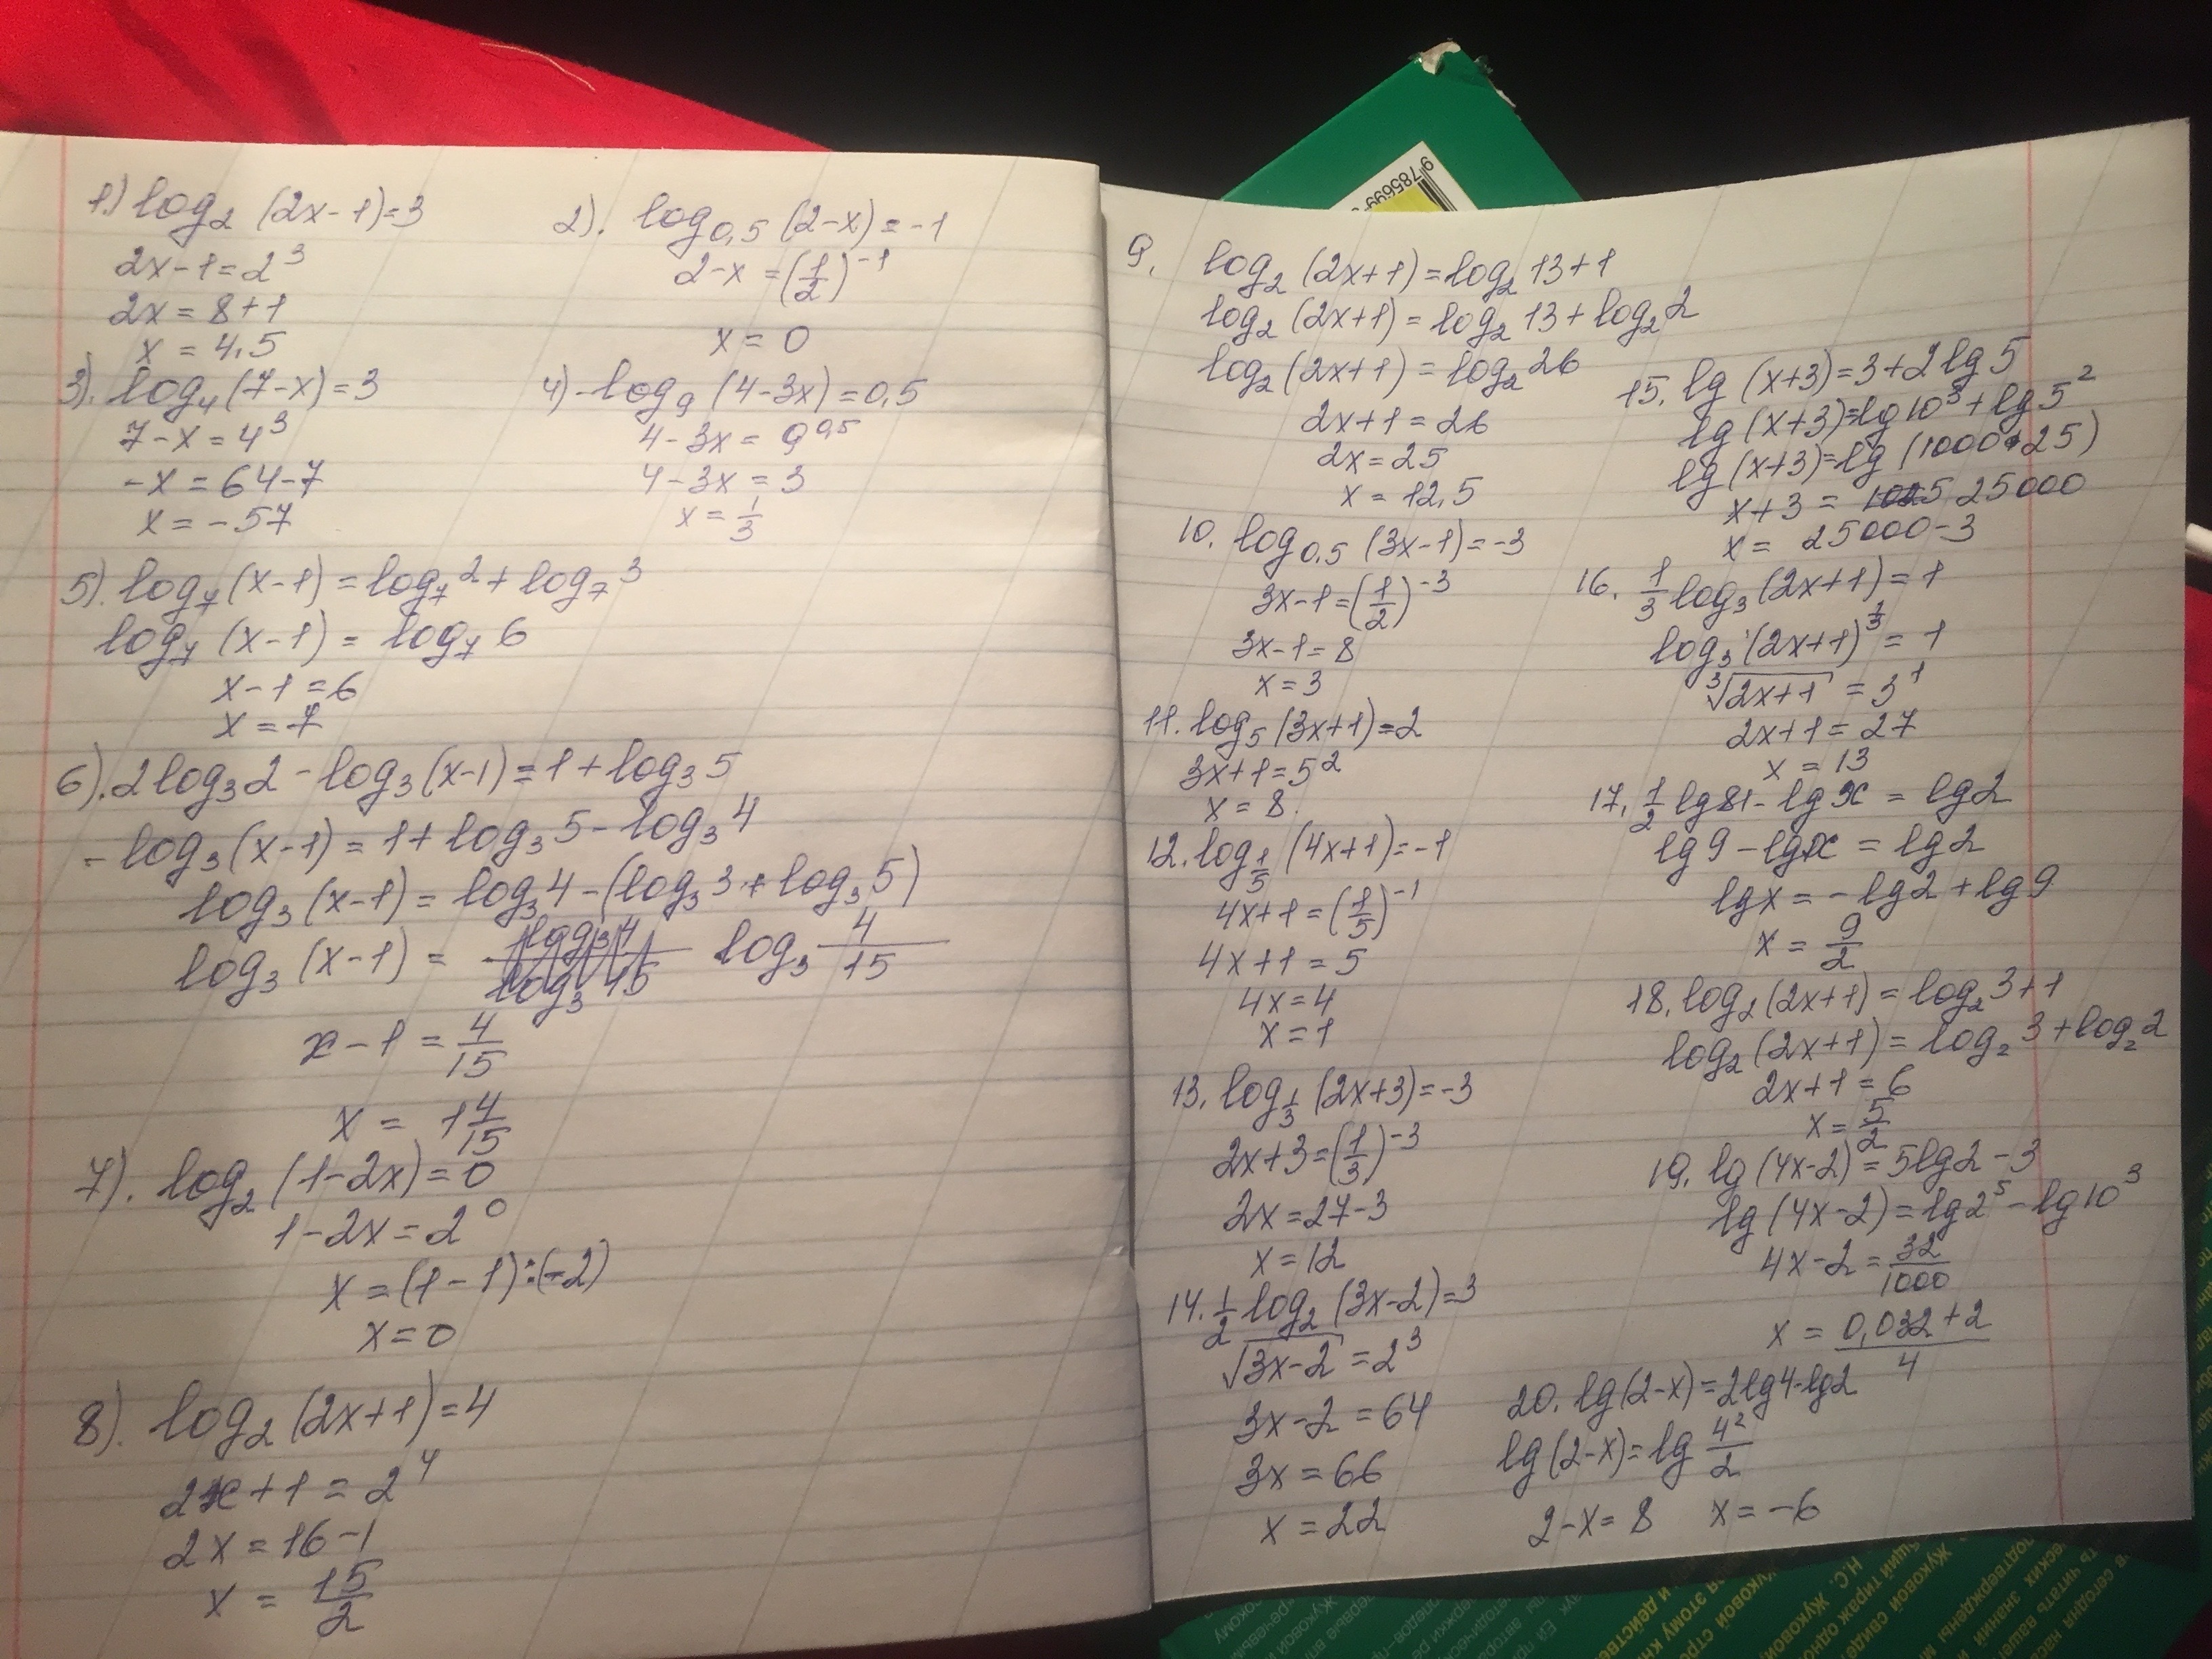 1.) log₂ (2x-1)=3
2x-1=2³
2x = 8+1
x = 4,5
2). log₀,₅ (2-x) = -1
2-x = (1/2)⁻¹
x = 0
3). log₄ (7-x)=3
7-x = 4³
-x = 64-7
x = -57
4) - log₉ (4-3x) = 0,5
4-3x = 9^0,5
4-3x = 3
x = 1/3
5). log₇ (x-1) = log₇ 2 + log₇ 3
log₇ (x-1) = log₇ 6
x-1 = 6
x = 7
6). 2 log₃ 2 - log₃ (x-1) = 1 + log₃ 5
- log₃ (x-1) = 1 + log₃ 5 - log₃ 4
log₃ (x-1) = log₃ 4 - (log₃ 3 + log₃ 5)
log₃ (x-1) = log₃ 4/15
x-1 = 4/15
x = 1 4/15
7). log₂ (1-2x) = 0
1-2x = 2⁰
x = (1-1):(-2)
x = 0
8). log₂ (2x+1) = 4
2x+1 = 2⁴
2x = 16-1
x = 15/2
9. log₂ (2x+1) = log₂ 13+1
log₂ (2x+1) = log₂ 13 + log₂ 2
log₂ (2x+1) = log₂ 26
2x+1 = 26
2x = 25
x = 12,5
10. log₀,₅ (3x-1) = -3
3x-1 = (1/2)⁻³
3x-1 = 8
x = 3
11. log₅ (3x+1) = 2
3x+1 = 5²
x = 8.
12. log_1/5 (4x+1) = -1
4x+1 = (1/5)⁻¹
4x+1 = 5
4x = 4
x = 1
13. log_1/3 (2x+3) = -3
2x+3 = (1/3)⁻³
2x = 27-3
x = 12
14. 1/2 log₂ (3x-2) = 3
√3x-2 = 2³
3x-2 = 64
3x = 66
x = 22
15. lg (x+3) = 3+2 lg 5
lg (x+3) = lg 10³ + lg 5²
lg (x+3) = lg (1000•25)
x+3 = 25000
x = 25000-3
16. 1/3 log₃ (2x+1) = 1
log₃ (2x+1)^1/3 = 1
³√2x+1 = 3¹
2x+1 = 27
x = 13
17. 1/2 lg 81 - lg x = lg 2
lg 9 - lg x = lg 2
lg x = - lg 2 + lg 9
x = 9/2
18. log₂ (2x+1) = log₂ 3+1
log₂ (2x+1) = log₂ 3 + log₂ 2
2x+1 = 6
x = 5/2
19. lg (4x-2) = 5 lg 2 - 3
lg (4x-2) = lg 2⁵ - lg 10³
4x-2 = 32/1000
x = 0,032+2/4
20. lg (2-x) = 2 lg 4 - lg 2
lg (2-x) = lg 4²/2
2-x = 8 x = -6
9 785699